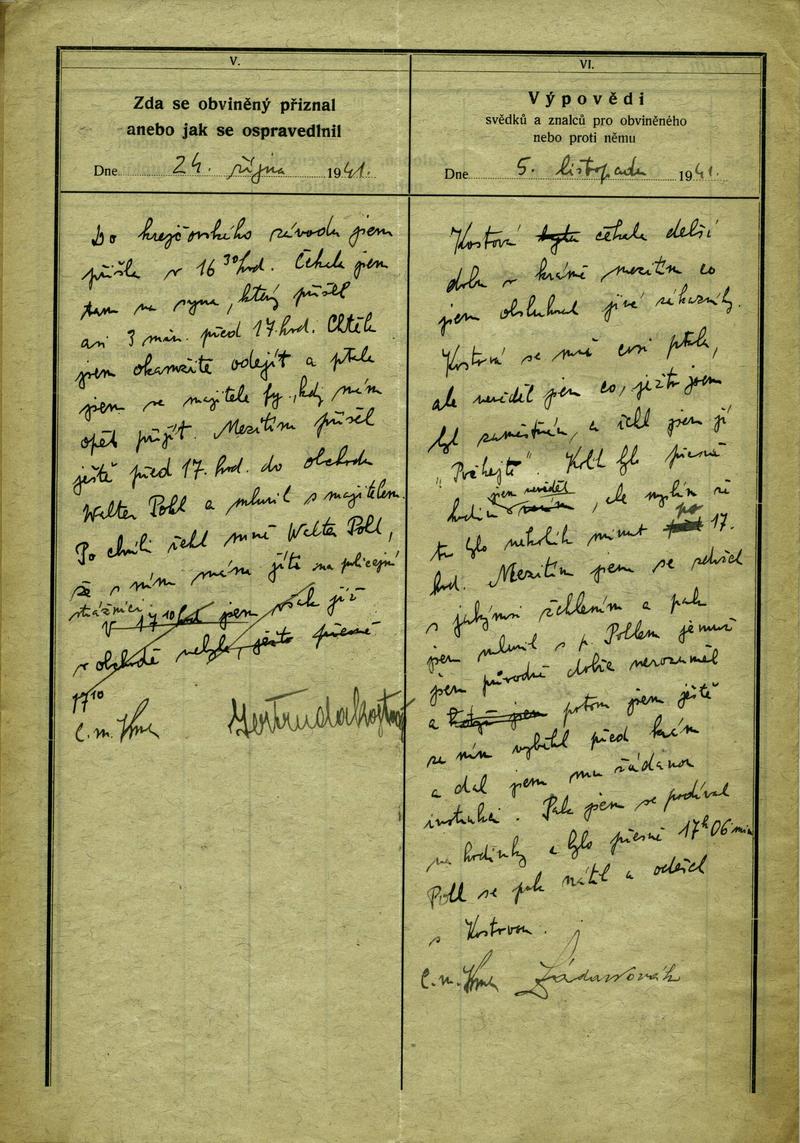 V.
Zda se obviněný přiznal
anebo jak se ospravedlnil
Dne 24. října 1941.
Do krejčovského závodu jsem
přišla v 16 30 hod. Čekala jsem
tam na syna, který přišel
asi 3 min. před 17. hod. Chtěla
jsem okamžitě odejít a ptala
jsem se majitele fy., kdy mám
opět přijít. Mezitím přišel
ještě před 17. hod. do obchodu
Walter Pohl a mluvil s majitelem.
Po chvíli řekl mně Walter Poll,
že s ním mám jíti na policejní
strážnici.
V 17 10 hod jsem však již
v obchodě nebyla, ješto přesně
17 10
C. m.
Gertruda
VI.
Výpovědi
svědků a znalců pro obviněného
nebo proti němu
Dne 5. listopadu 1941.
Kostová byla čekala delší
dobu v krámě mezitím co
jsem obsluhoval jiné zákazníky.
Kostová se mně cosi ptala,
ale nevěděl jsem co, ježto jsem
byl zaměstnán, a řekl jsem jí
"Počkejte". Kolik bylo přesně
hodin jsem nevěděl, ale myslím že
to bylo několik minut po 17.
hod. Mezitím jsem se zdržel
s jakýmsi žehlením a pak
jsem mluvil s p. Pollem jemuž
jsem původně dobře nerozuměl
a když jsem potom jsem ještě
se ním vyběhl před krám
a dal jsem mu žádanou
instrukci. Pak jsem se podíval
na hodinky a bylo přesně 17h 06 min
Poll se pak vrátil a odešel
s Kostovou.
C. m.